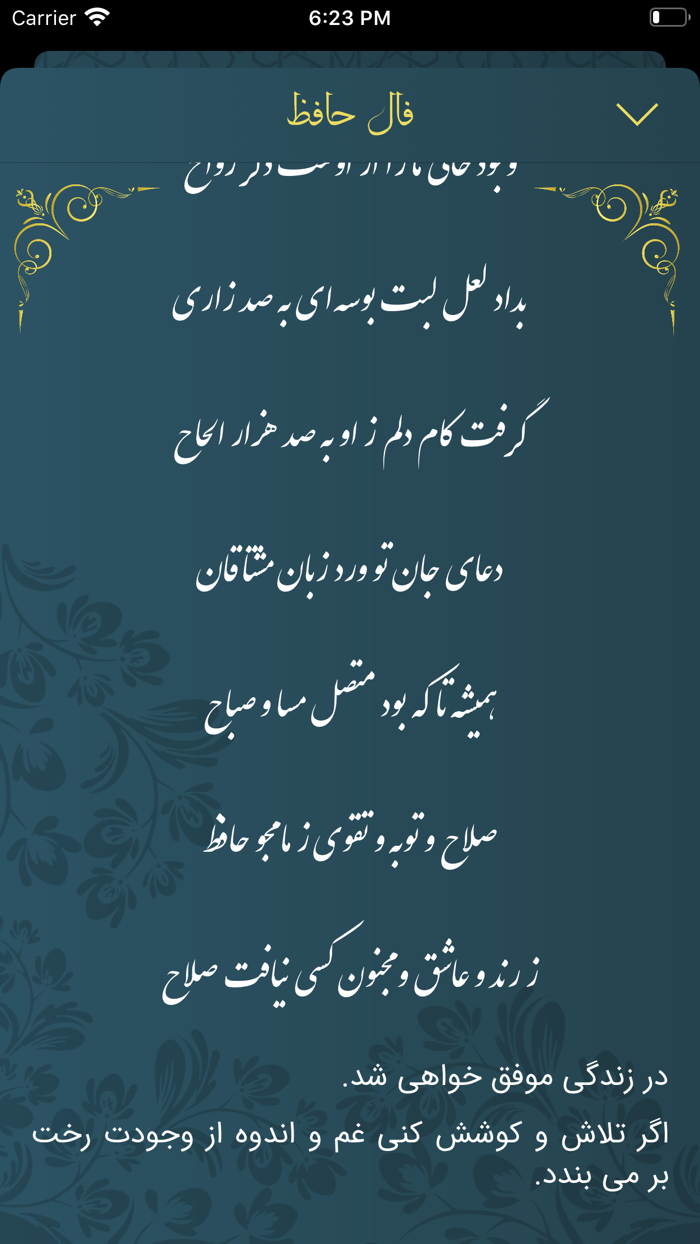 Carrier 6:23 PM
فال حافظ
بداد لعل لبت بوسه‌ای به صد زاری
گرفت کام دلم ز او به صد هزار الحاح
دعای جان تو ورد زبان مشتاقان
همیشه تا که بود متصل مسا و صباح
صلاح و توبه و تقوی ز ما مجو حافظ
ز رند و عاشق و مجنون کسی نیافت صلاح
در زندگی موفق خواهی شد.
اگر تلاش و کوشش کنی غم و اندوه از وجودت رخت
بر می بندد.